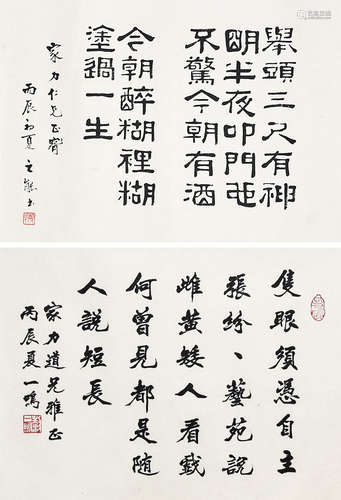 舉頭三尺有神
明半夜叩門也
不驚今朝有酒
今朝醉糊裡糊
塗過一生
家力仁兄正
丙辰初夏
隻眼須憑自主
張紛、藝苑說
雌黃矮人看戲
何曾見都是隨
人說短長
家力道兄雅正
丙辰夏一鳴